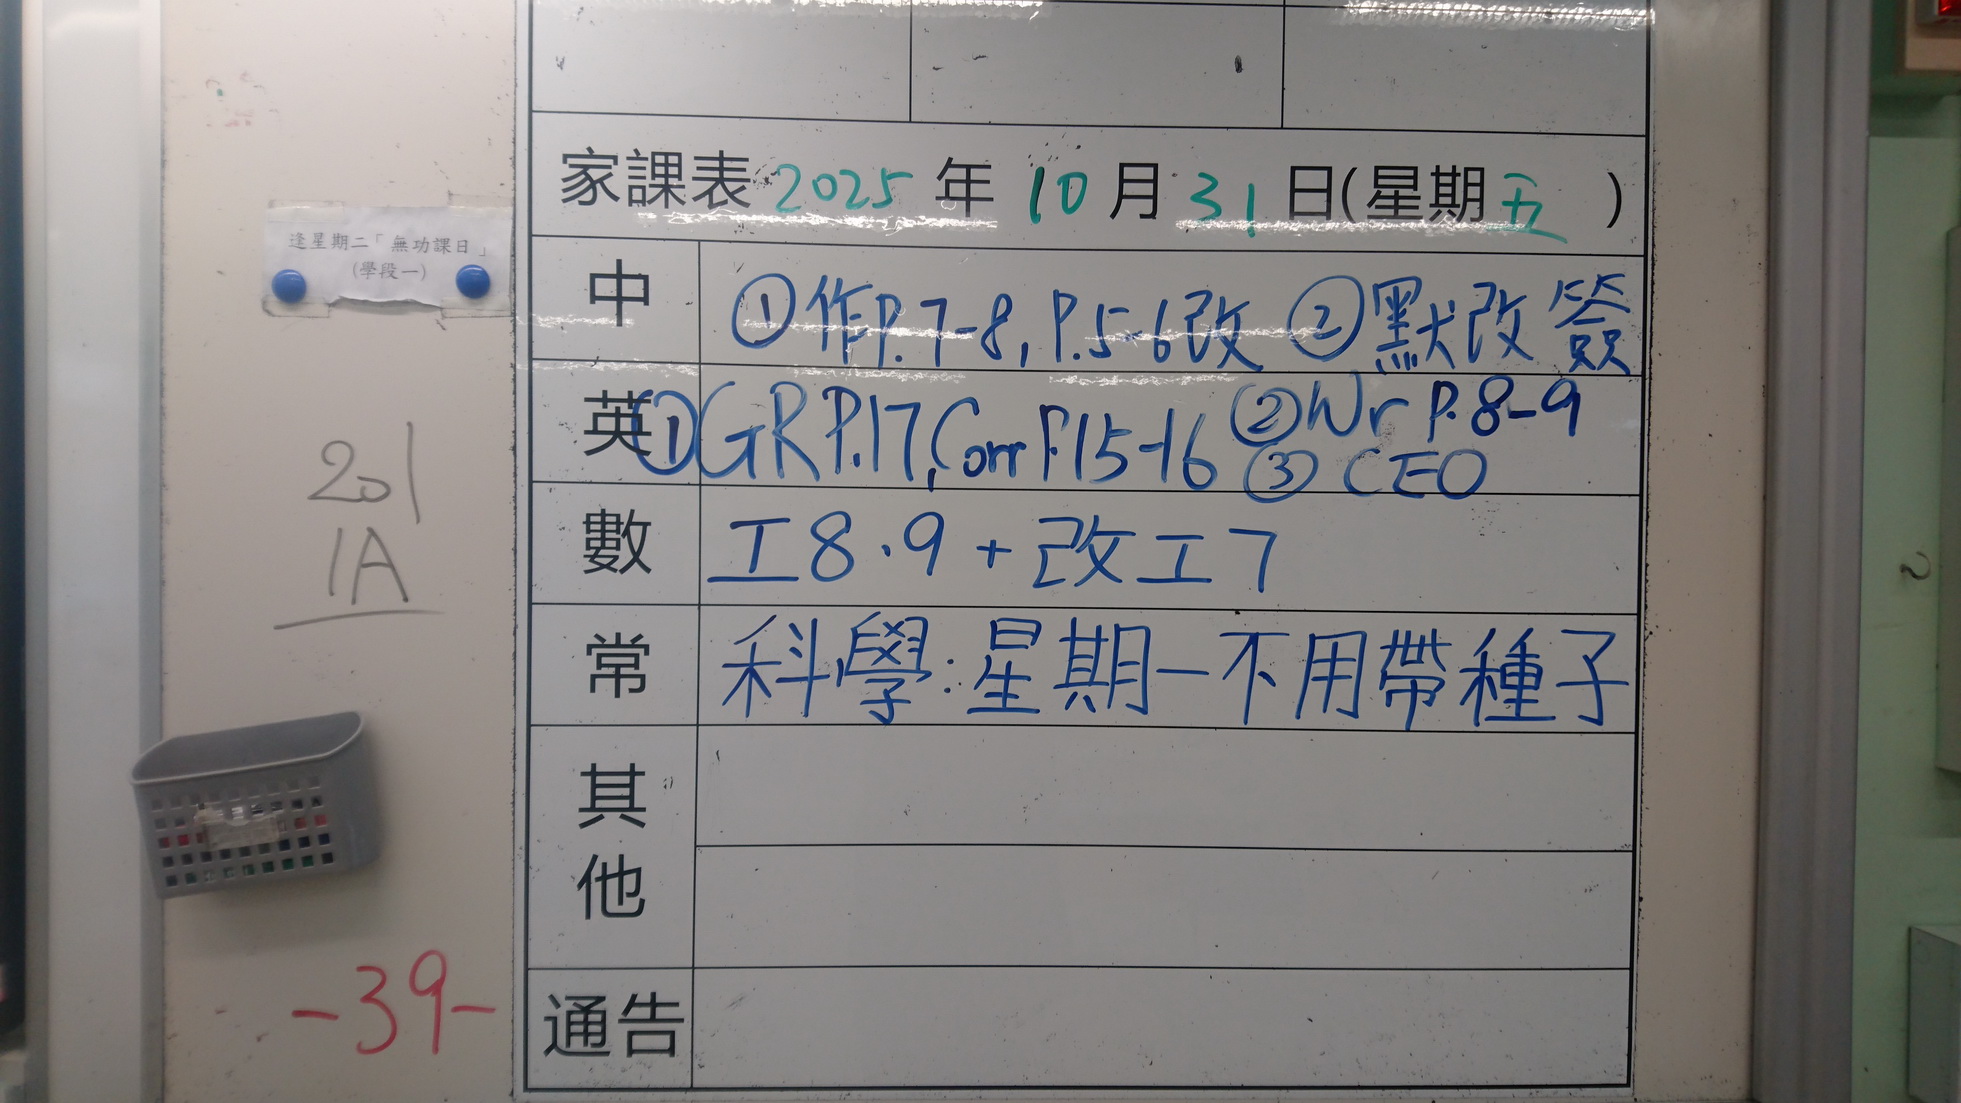 家課表 2025 年 10 月 31 日(星期五 )
逢星期二「無功課日」
(學段一)
中 ①作P.7-8, P.5-6改 ②默改簽
英 ①GR P.17, Corr P.15-16 ②Wr P.8-9
③ CEO
數 工8.9 + 改工7
常 科學:星期一不用帶種子
其他
通告
201
1A
-39-